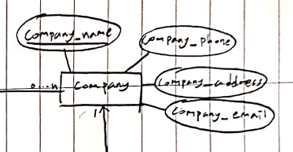 Company_name
Company_phone
0....n
Company
Company_address
1
Company_email